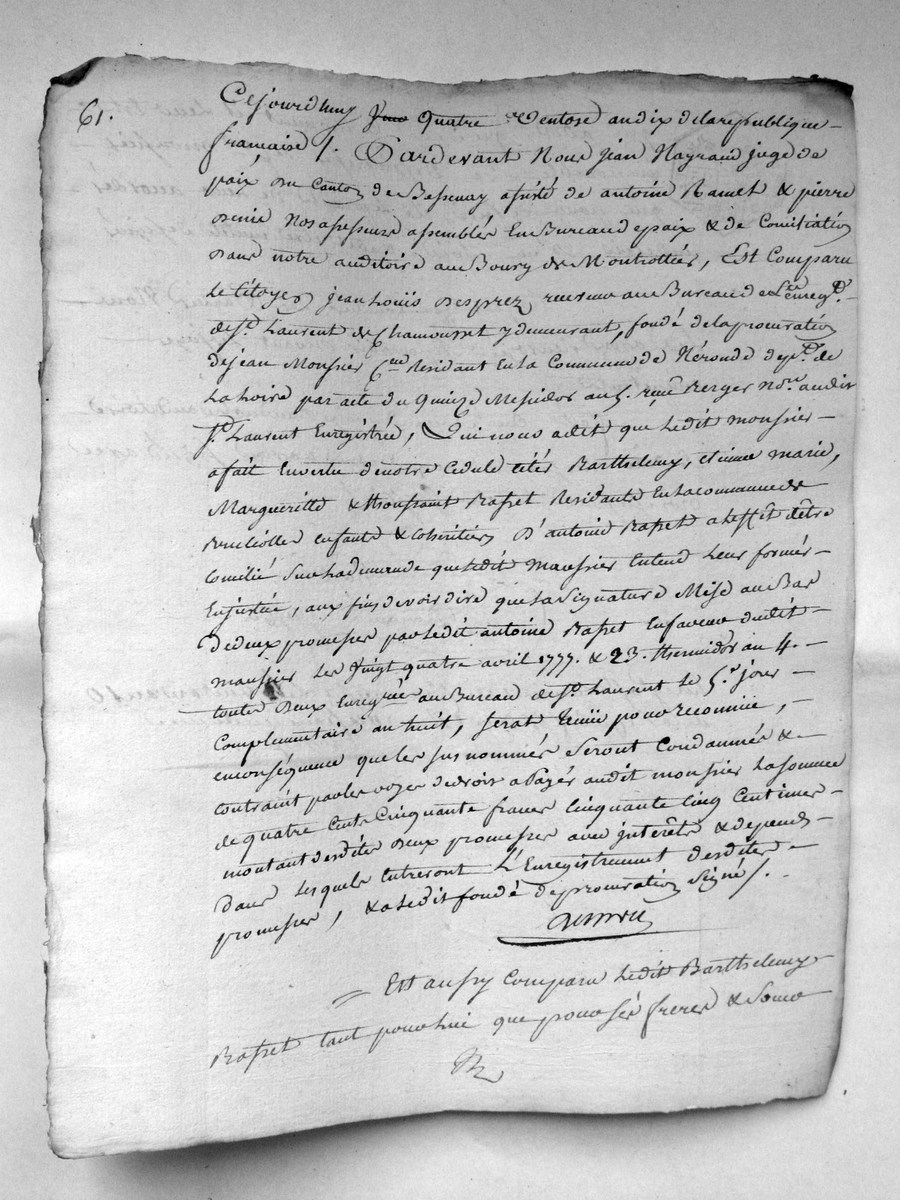 61.
Cejourdhuy quatre ventose an dix de la republique
francaise /. Pardevant Nous jean Nayraud juge de
paix du Canton de Bessenay assisté de antoine Ramet & pierre
denis nos assesseurs assemblés En Bureau de paix & de Conciliation
dans notre auditoire au Bourg de Montrottier, Est Comparu
le citoyen jean Louis Desprez receveur au Bureau de Lenregt.
de St. Laurent de Chamousset y demeurant, fondé de la procuration
de jean Monsier Résidant En la Commune de Néronde dept. de
La Loire par acte du Quinze Messidor an 5. reçu Berger nore. audit
St. Laurent Enregistrée, Qui nous a dit que ledit monsier
a fait En vertu de notre Cedule citér Barthelemy, etienne marie,
Margueritte & thoussaint Rasset Residants En la commune de
Brulliolle enfants & Cohéritiers D'antoine Rasset a l'effet dêtre
Concilié Sur la demande que ledit monsier Entend leur former
En justice, aux fins de voir dire que la Signature Mise au Bas
De deux promesses par ledit antoine Rasset En faveur dudit
monsier les vingt quatre avril 1777. & 23. thermidor an 4.
toutes deux Enregtrées au Bureau de St. Laurent le 5e. jour
Complementaire an huit, serat tenue pour reconnue,
en conséquence que les sus nommés Seront Condamnés &
contraint par les voyes de droit a Payér audit monsier la somme
de quatre Cents Cinquante francs Cinquante Cinq Centimes
montant desdites deux promesses avec intérêts & depends
Dans lesquels Entreront L'Enregistrement desdites
promesses, & a ledit fondé de procuration Signé /.
Est aussy Comparu ledit Barthelemy
Rasset tant pour lui que pour ses freres & Soeur